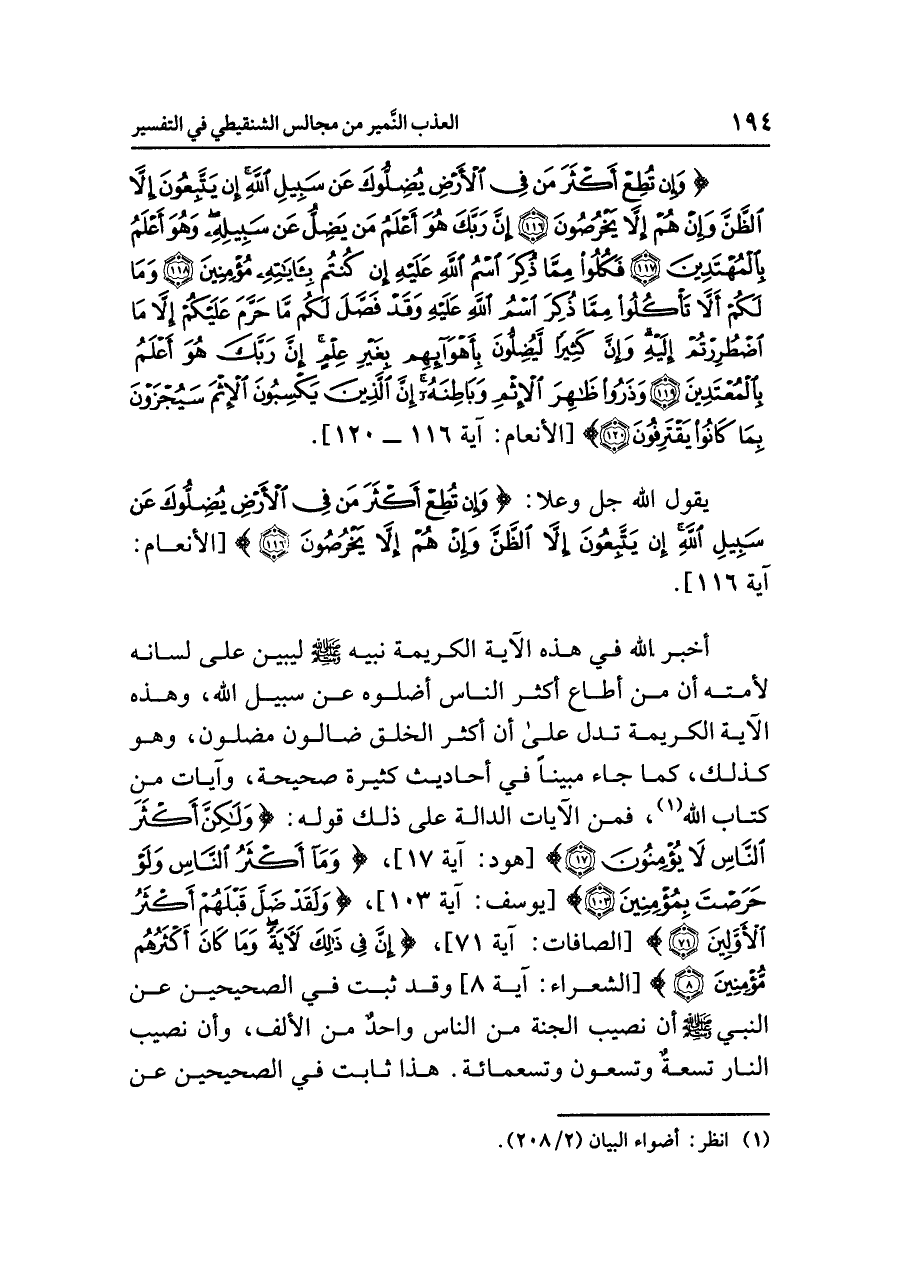 ١٩٤ العذب النَّمير من مجالس الشنقيطي في التفسير
﴿ وَإِن تُطِعْ أَكْثَرَ مَن فِى ٱلْأَرْضِ يُضِلُّوكَ عَن سَبِيلِ ٱللَّهِ ۚ إِن يَتَّبِعُونَ إِلَّا
ٱلظَّنَّ وَإِنْ هُمْ إِلَّا يَخْرُصُونَ ١١٦ إِنَّ رَبَّكَ هُوَ أَعْلَمُ مَن يَضِلُّ عَن سَبِيلِهِۦ ۖ وَهُوَ أَعْلَمُ
بِٱلْمُهْتَدِينَ ١١٧ فَكُلُوا۟ مِمَّا ذُكِرَ ٱسْمُ ٱللَّهِ عَلَيْهِ إِن كُنتُم بِـَٔايَـٰتِهِۦ مُؤْمِنِينَ ١١٨ وَمَا
لَكُمْ أَلَّا تَأْكُلُوا۟ مِمَّا ذُكِرَ ٱسْمُ ٱللَّهِ عَلَيْهِ وَقَدْ فَصَّلَ لَكُم مَّا حَرَّمَ عَلَيْكُمْ إِلَّا مَا
ٱضْطُرِرْتُمْ إِلَيْهِ ۗ وَإِنَّ كَثِيرًا لَّيُضِلُّونَ بِأَهْوَآئِهِم بِغَيْرِ عِلْمٍ ۗ إِنَّ رَبَّكَ هُوَ أَعْلَمُ
بِٱلْمُعْتَدِينَ ١١٩ وَذَرُوا۟ ظَـٰهِرَ ٱلْإِثْمِ وَبَاطِنَهُۥٓ ۚ إِنَّ ٱلَّذِينَ يَكْسِبُونَ ٱلْإِثْمَ سَيُجْزَوْنَ
بِمَا كَانُوا۟ يَقْتَرِفُونَ ١٢٠ ﴾ [الأنعام: آية ١١٦ – ١٢٠].
يقول الله جل وعلا: ﴿ وَإِن تُطِعْ أَكْثَرَ مَن فِى ٱلْأَرْضِ يُضِلُّوكَ عَن
سَبِيلِ ٱللَّهِ ۚ إِن يَتَّبِعُونَ إِلَّا ٱلظَّنَّ وَإِنْ هُمْ إِلَّا يَخْرُصُونَ ١١٦ ﴾ [الأنعام:
آية ١١٦].
أخبر الله في هذه الآية الكريمة نبيه ﷺ ليبين على لسانه
لأمته أن من أطاع أكثر الناس أضلوه عن سبيل الله، وهذه
الآية الكريمة تدل علىٰ أن أكثر الخلق ضالون مضلون، وهو
كذلك، كما جاء مبيناً في أحاديث كثيرة صحيحة، وآيات من
كتاب الله(١)، فمن الآيات الدالة على ذلك قوله: ﴿ وَلَـٰكِنَّ أَكْثَرَ
ٱلنَّاسِ لَا يُؤْمِنُونَ ١٧ ﴾ [هود: آية ١٧]، ﴿ وَمَآ أَكْثَرُ ٱلنَّاسِ وَلَوْ
حَرَصْتَ بِمُؤْمِنِينَ ١٠٣ ﴾ [يوسف: آية ١٠٣]، ﴿ وَلَقَدْ ضَلَّ قَبْلَهُمْ أَكْثَرُ
ٱلْأَوَّلِينَ ٧١ ﴾ [الصافات: آية ٧١]، ﴿ إِنَّ فِى ذَٰلِكَ لَـَٔايَةً ۖ وَمَا كَانَ أَكْثَرُهُم
مُّؤْمِنِينَ ٨ ﴾ [الشعراء: آية ٨] وقد ثبت في الصحيحين عن
النبي ﷺ أن نصيب الجنة من الناس واحدٌ من الألف، وأن نصيب
النار تسعةٌ وتسعون وتسعمائة. هذا ثابت في الصحيحين عن
(١) انظر: أضواء البيان (٢/ ٢٠٨).